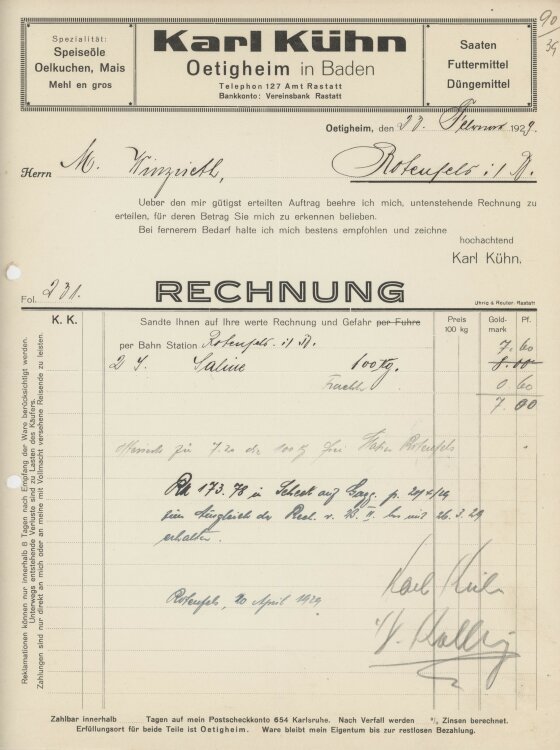 90
Spezialität:
Speiseöle
Oelkuchen, Mais
Mehl en gros
Karl Kühn
Oetigheim in Baden
Telephon 127 Amt Rastatt
Bankkonto: Vereinsbank Rastatt
Saaten
Futtermittel
Düngemittel
Oetigheim, den 23. Februar 1929.
Herrn M.
Rotenfels i/ B.
Ueber den mir gütigst erteilten Auftrag beehre ich mich, untenstehende Rechnung zu
erteilen, für deren Betrag Sie mich zu erkennen belieben.
Bei fernerem Bedarf halte ich mich bestens empfohlen und zeichne
hochachtend
Karl Kühn.
Fol. 231.
RECHNUNG
Uhrig & Reuter, Rastatt
K. K.
Sandte Ihnen auf Ihre werte Rechnung und Gefahr per Fuhre
per Bahn Station Rotenfels i/ B.
Preis
100 kg
Gold-
mark
Pf.
7.60
2 S. Saline 100 Kg. 8.00
Fracht 0 60
7.00
zu 7.20 die 100 frei Rotenfels
RM 173.78 in Scheck auf Gagg. p. 20/4/29
zum Ausgleich der Rech. v. 23. II. bis mit 26.3.29
erhalten.
Rotenfels, 20 April 1929
Karl Kühn
Reklamationen können nur innerhalb 8 Tagen nach Empfang der Ware berücksichtigt werden.
Unterwegs entstehende Verluste sind zu Lasten des Käufers.
Zahlungen sind nur direkt an mich oder an meine mit Vollmacht versehene Reisende zu leisten.
Zahlbar innerhalb Tagen auf mein Postscheckkonto 654 Karlsruhe. Nach Verfall werden % Zinsen berechnet.
Erfüllungsort für beide Teile ist Oetigheim. Ware bleibt mein Eigentum bis zur restlosen Bezahlung.